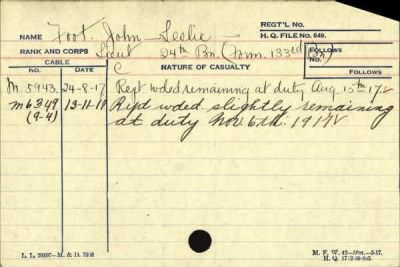 REGT'L NO.
NAME Foot, John Leslie -
H. Q. FILE NO. 649.
RANK AND CORPS Lieut 24th Bn. (Form. 133rd Bn)
FOLLOWS
CABLE
NO. DATE C NATURE OF CASUALTY
NO.
FOLLOWS
M 5943. 24-8-17 Rept wded remaining at duty Aug. 15th 17.
M 6349 13-11-17 Rept wded. slightly remaining
(9-4) at duty Nov. 6th. 1917
L. L. 20497—M. & D. 7908
M. F. W. 42—50M.—5-17.
H. Q. 1772-39-893.